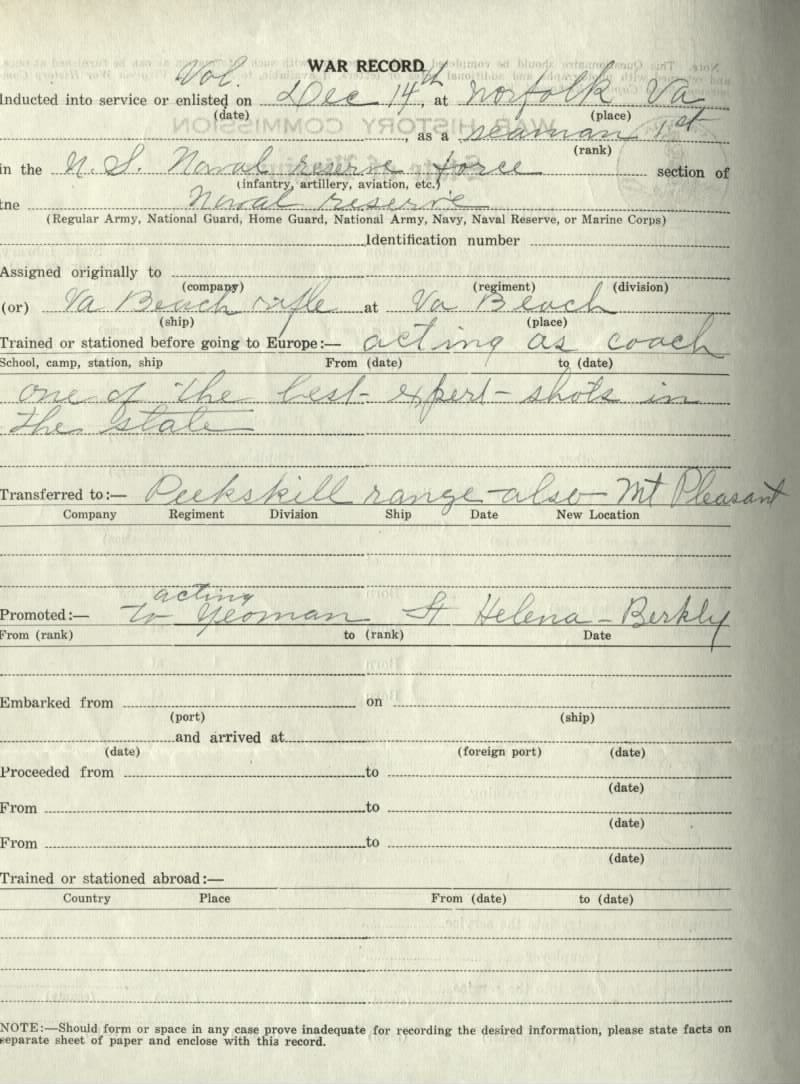 WAR RECORD
Vol.
Inducted into service or enlisted on Dec 14th, at Norfolk Va
(date) (place)
, as a seaman 1st
(rank)
in the U.S. Naval reserve force section of
(infantry, artillery, aviation, etc.)
the Naval reserve
(Regular Army, National Guard, Home Guard, National Army, Navy, Naval Reserve, or Marine Corps)
Identification number
Assigned originally to
(company) (regiment) (division)
(or) Va Beach rifle at Va Beach
(ship) (place)
Trained or stationed before going to Europe:— acting as coach
School, camp, station, ship From (date) to (date)
one of the best- expert- shots in
the state
Transferred to:— Peekskill range- also- Mt Pleasant
Company Regiment Division Ship Date New Location
acting
Promoted:— to Yeoman St Helena - Berkly
From (rank) to (rank) Date
Embarked from on
(port) (ship)
and arrived at
(date) (foreign port) (date)
Proceeded from to
(date)
From to
(date)
From to
(date)
Trained or stationed abroad:—
Country Place From (date) to (date)
NOTE:—Should form or space in any case prove inadequate for recording the desired information, please state facts on
separate sheet of paper and enclose with this record.